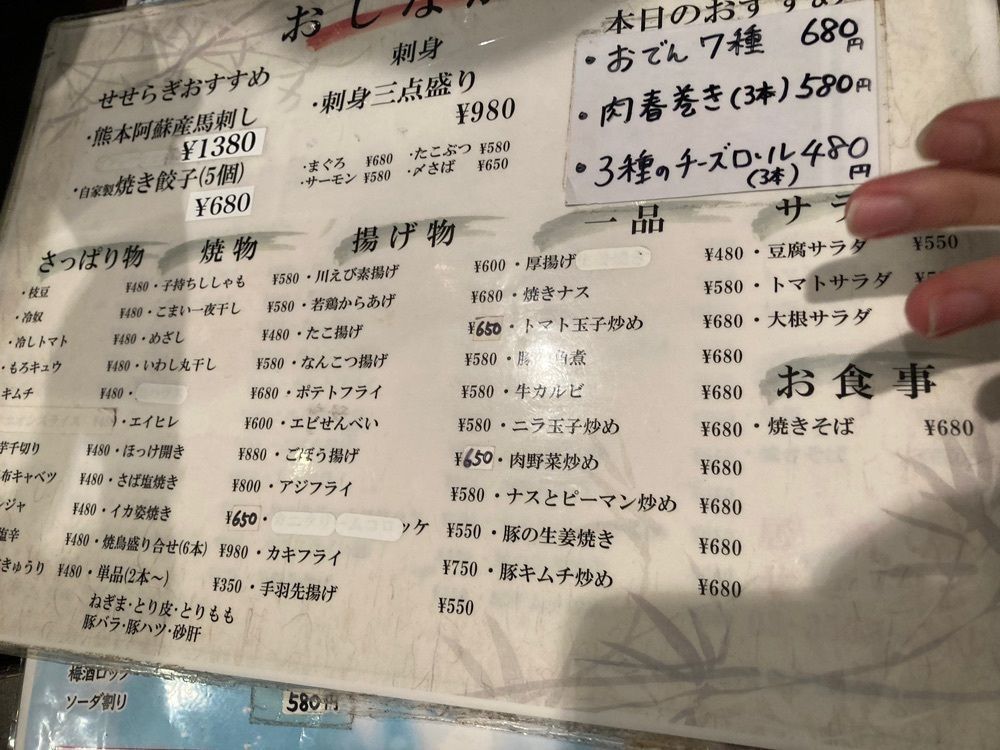 おしなが
せせらぎおすすめ
・熊本阿蘇産馬刺し
¥1380
・自家製焼き餃子(5個)
¥680
刺身
・刺身三点盛り
¥980
・まぐろ ¥680
・サーモン ¥580
・たこぶつ ¥580
・〆さば ¥650
本日のおすすめ
・おでん7種 680円
・肉春巻き(3本) 580円
・3種のチーズロール 480円
(3本)
さっぱり物
・枝豆 ¥480
・冷奴 ¥480
・冷しトマト ¥480
・もろキュウ ¥480
キムチ ¥480
芋千切り ¥480
布キャベツ ¥480
ンジャ ¥480
塩辛 ¥480
きゅうり ¥480
焼物
・子持ちししゃも ¥580
・こまい一夜干し ¥580
・めざし ¥480
・いわし丸干し ¥580
・ ¥680
・エイヒレ ¥600
・ほっけ開き ¥880
・さば塩焼き ¥800
・イカ姿焼き ¥650
・焼鳥盛り合せ(6本) ¥980
・単品(2本～) ¥350
ねぎま・とり皮・とりもも
豚バラ・豚ハツ・砂肝
揚げ物
・川えび素揚げ ¥600
・若鶏からあげ ¥680
・たこ揚げ ¥650
・なんこつ揚げ ¥580
・ポテトフライ ¥580
・エビせんべい ¥580
・ごぼう揚げ ¥650
・アジフライ ¥580
・ ロッケ ¥550
・カキフライ ¥750
・手羽先揚げ ¥550
一品
・厚揚げ ¥480
・焼きナス ¥580
・トマト玉子炒め ¥680
・豚の角煮 ¥680
・牛カルビ ¥680
・ニラ玉子炒め ¥680
・肉野菜炒め ¥680
・ナスとピーマン炒め ¥680
・豚の生姜焼き ¥680
・豚キムチ炒め ¥680
サラ
・豆腐サラダ ¥550
・トマトサラダ
・大根サラダ
お食事
・焼きそば ¥680
梅酒ロック
ソーダ割り
580円